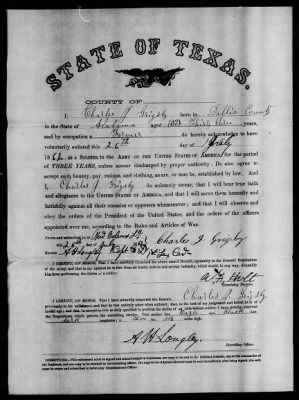 STATE OF TEXAS.
COUNTY OF
I, Charles J. Grigsby born in Dallas County
in the State of Alabama aged thirty three years,
and by occupation a Farmer do hereby acknowledge to have
voluntarily enlisted this 26th day of July
186 , as a Soldier in the Army of the United States of America, for the period
of THREE YEARS, unless sooner discharged by proper authority: Do also agree to
accept such bounty, pay, rations, and clothing, as are, or may be, established by law. And
I, Charles J. Grigsby do solemnly swear, that I will bear true faith
and allegiance to the United States of America, and that I will serve them honestly and
faithfully against all their enemies or opposers whomsoever; and that I will observe and
obey the orders of the President of the United States, and the orders of the officers
appointed over me, according to the Rules and Articles of War.
Sworn and subscribed to, at New Orleans
this 26th day of
Charles J. Grigsby
I CERTIFY, ON HONOR, That I have carefully examined the above named Soldier, agreeably to the General Regulations
of the Army, and that in my opinion he is free from all bodily defects and mental infirmity, which would, in any way, disqualify
him from performing the duties of a soldier.
Holt
Examining Surgeon.
I CERTIFY, ON HONOR, That I have minutely inspected the Recruit, Charles J. Grigsby
previously to his enlistment, and that he was entirely sober when enlisted; that, to the best of my judgment and belief, he is of
lawful age; and that, in accepting him as duly qualified to perform the duties of an able-bodied soldier, I have strictly observed
the Regulations which govern the recruiting service. This soldier has eyes, black hair,
dark complexion, is feet inches high.
A. H. Longley
Recruiting Officer.